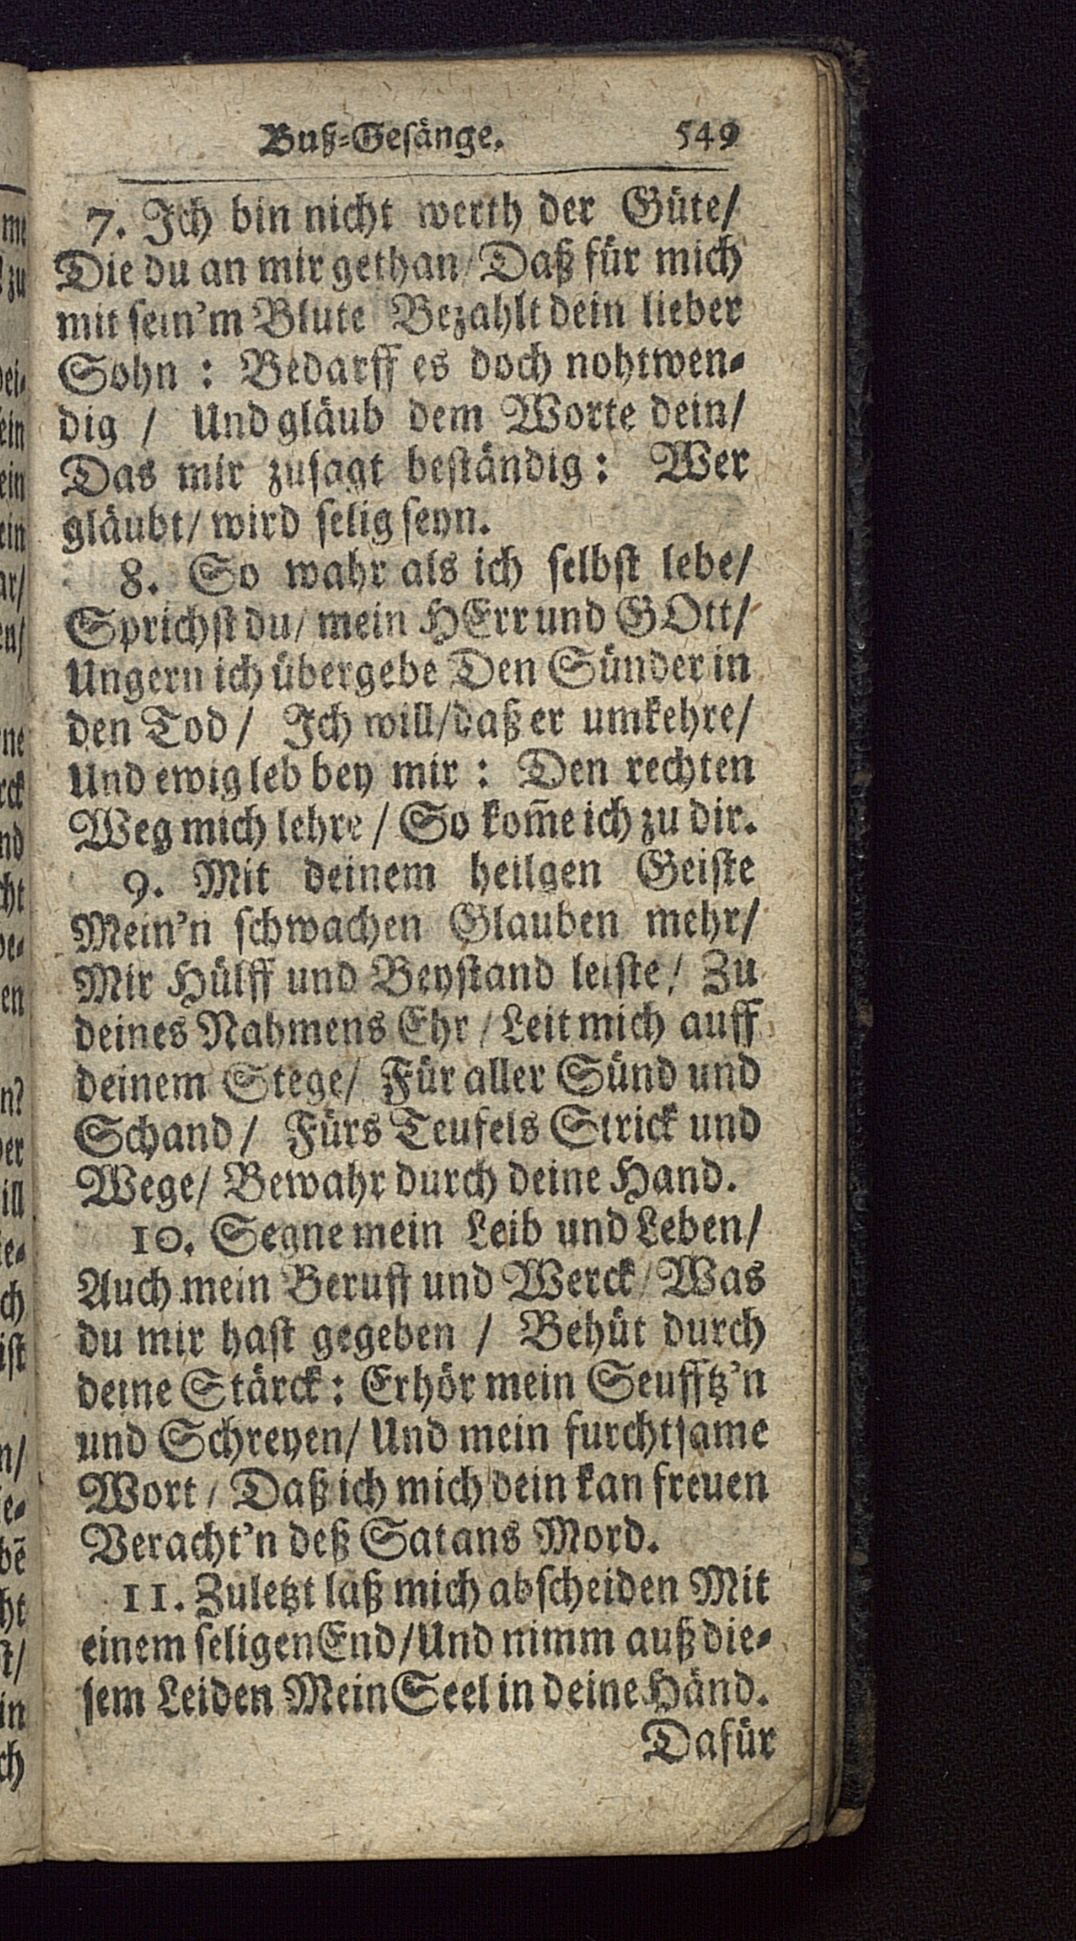 Buß-Gesänge. 549
7. Ich bin nicht werth der Güte/
Die du an mir gethan/ Daß für mich
mit sein'm Blute Bezahlt dein lieber
Sohn : Bedarff es doch nohtwen-
dig / Und gläub dem Worte dein/
Das mir zusagt beständig: Wer
gläubt/ wird selig seyn.
8. So wahr als ich selbst lebe/
Sprichst du/ mein HErr und GOtt/
Ungern ich übergebe Den Sünder in
den Tod / Ich will/ daß er umkehre/
Und ewig leb bey mir : Den rechten
Weg mich lehre / So kom̃e ich zu dir.
9. Mit deinem heilgen Geiste
Mein'n schwachen Glauben mehr/
Mir Hülff und Beystand leiste/ Zu
deines Nahmens Ehr / Leit mich auff
deinem Stege/ Für aller Sünd und
Schand / Fürs Teufels Strick und
Wege/ Bewahr durch deine Hand.
10. Segne mein Leib und Leben/
Auch mein Beruff und Werck/ Was
du mir hast gegeben / Behüt durch
deine Stärck: Erhör mein Seufftz'n
und Schreyen/ Und mein furchtsame
Wort / Daß ich mich dein kan freuen
Veracht'n deß Satans Mord.
11. Zuletzt laß mich abscheiden Mit
einem seligen End/ Und nimm auß die-
sem Leiden Mein Seel in deine Händ.
Dafür